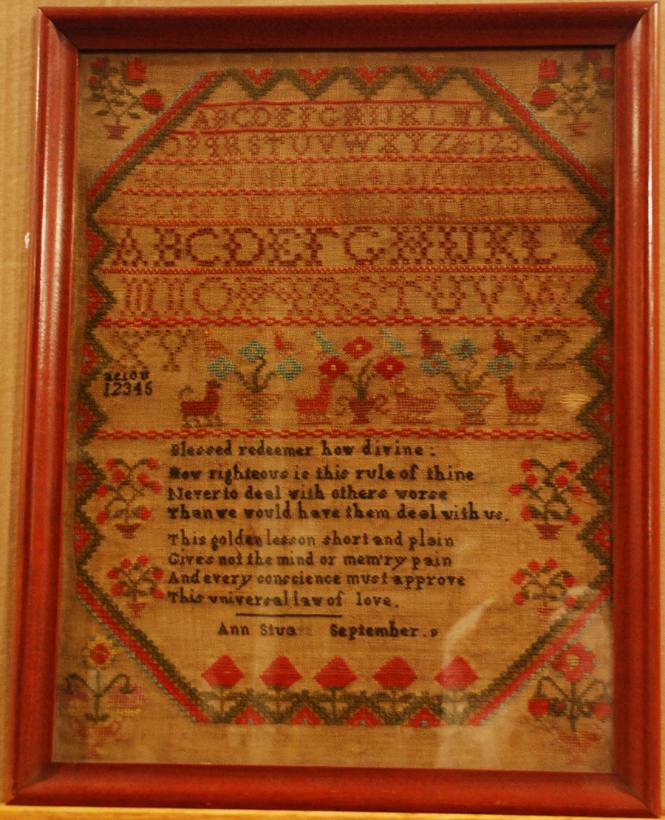 ABCDEFGHIJKLMN
OPQRSTUVWXYZ&123
ABCDEFGHIJKL
MNOPQRSTUVW
XY
Z
aeiou
12345
Blessed redeemer how divine:
How righteous is this rule of thine
Never to deal with others worse
Than we would have them deal with us.
This golden lesson short and plain
Gives not the mind or mem'ry pain
And every conscience must approve
This universal law of love.
Ann September. 9